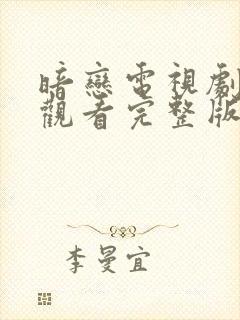 暗戀電視劇
觀看完整版
李曼宜